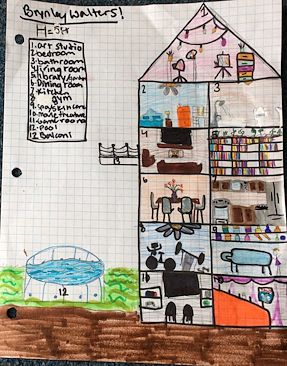 Brynley Walters!
H=5ft
1.art Studio
2bedroom
3.bathroom
4living room
5library
6.Dining room
7.Kitchen
8 gym
9.spa/skincare
10.movie theatre
11.Game room
12.pool
12 Balconi
1
2
3
4
6
8
9
10
12